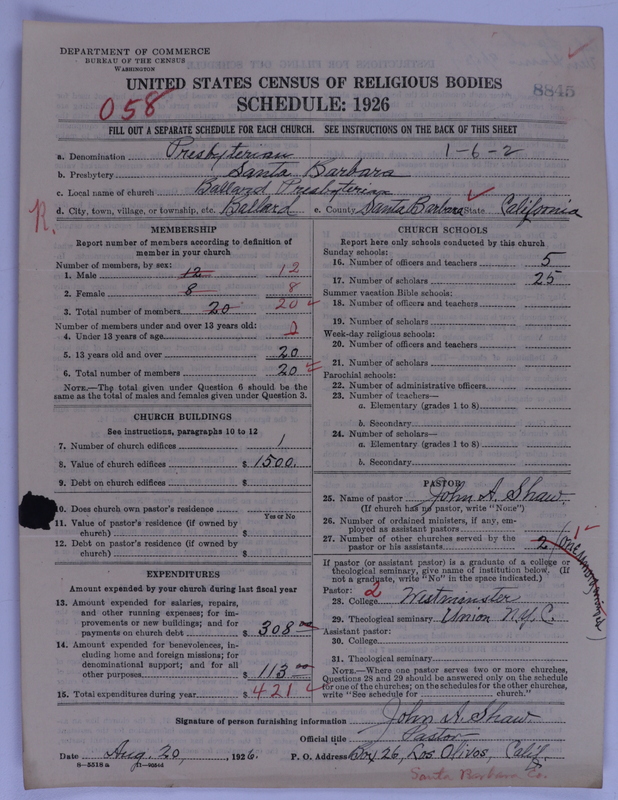 DEPARTMENT OF COMMERCE
BUREAU OF THE CENSUS
WASHINGTON
UNITED STATES CENSUS OF RELIGIOUS BODIES
8845
058
SCHEDULE: 1926
FILL OUT A SEPARATE SCHEDULE FOR EACH CHURCH. SEE INSTRUCTIONS ON THE BACK OF THIS SHEET
a. Denomination Presbyterian 1-6-2
b. Presbytery Santa Barbara
c. Local name of church Ballard Presbyterian
d. City, town, village, or township, etc. Ballard e. County Santa Barbara State California
R.
MEMBERSHIP
Report number of members according to definition of
member in your church
Number of members, by sex:
1. Male 12 12
2. Female 8 8
3. Total number of members 20 20
Number of members under and over 13 years old:
4. Under 13 years of age 0
5. 13 years old and over 20
6. Total number of members 20
NOTE.—The total given under Question 6 should be the
same as the total of males and females given under Question 3.
CHURCH BUILDINGS
See instructions, paragraphs 10 to 12
7. Number of church edifices 1
8. Value of church edifices $ 1500.
9. Debt on church edifices $
10. Does church own pastor's residence
Yes or No
11. Value of pastor's residence (if owned by
church) $
12. Debt on pastor's residence (if owned by
church) $
EXPENDITURES
Amount expended by church during last fiscal year
13. Amount expended for salaries, repairs,
and other running expenses; for im-
provements or new buildings; and for
payments on church debt $ 308 00
14. Amount expended for benevolences, in-
cluding home and foreign missions; for
denominational support; and for all
other purposes $ 113 00
15. Total expenditures during year $ 421
CHURCH SCHOOLS
Report here only schools conducted by this church
Sunday schools:
16. Number of officers and teachers 5
17. Number of scholars 25
Summer vacation Bible schools:
18. Number of officers and teachers
19. Number of scholars
Week-day religious schools:
20. Number of officers and teachers
21. Number of scholars
Parochial schools:
22. Number of administrative officers
23. Number of teachers—
a. Elementary (grades 1 to 8)
b. Secondary
24. Number of scholars—
a. Elementary (grades 1 to 8)
b. Secondary
PASTOR
25. Name of pastor John A. Shaw.
(If church has no pastor, write "None")
26. Number of ordained ministers, if any, em-
ployed as assistant pastors
27. Number of other churches served by the
pastor or his assistants 2 1
If pastor (or assistant pastor) is a graduate of a college or
theological seminary, give name of institution below. (If
not a graduate, write "No" in the space indicated.)
Pastor: 2
28. College Westminster
29. Theological seminary Union N.Y.C.
Assistant pastor:
30. College
31. Theological seminary
NOTE.—Where one pastor serves two or more churches,
Questions 28 and 29 should be answered only on the schedule
for one of the churches; on the schedules for the other churches,
write "See schedule for church."
Signature of person furnishing information John A. Shaw
Official title Pastor
Date Aug. 20, 1926. P. O. Address Box 26, Los Olivos, Calif.
8—5518 a
Santa Barbara Co.